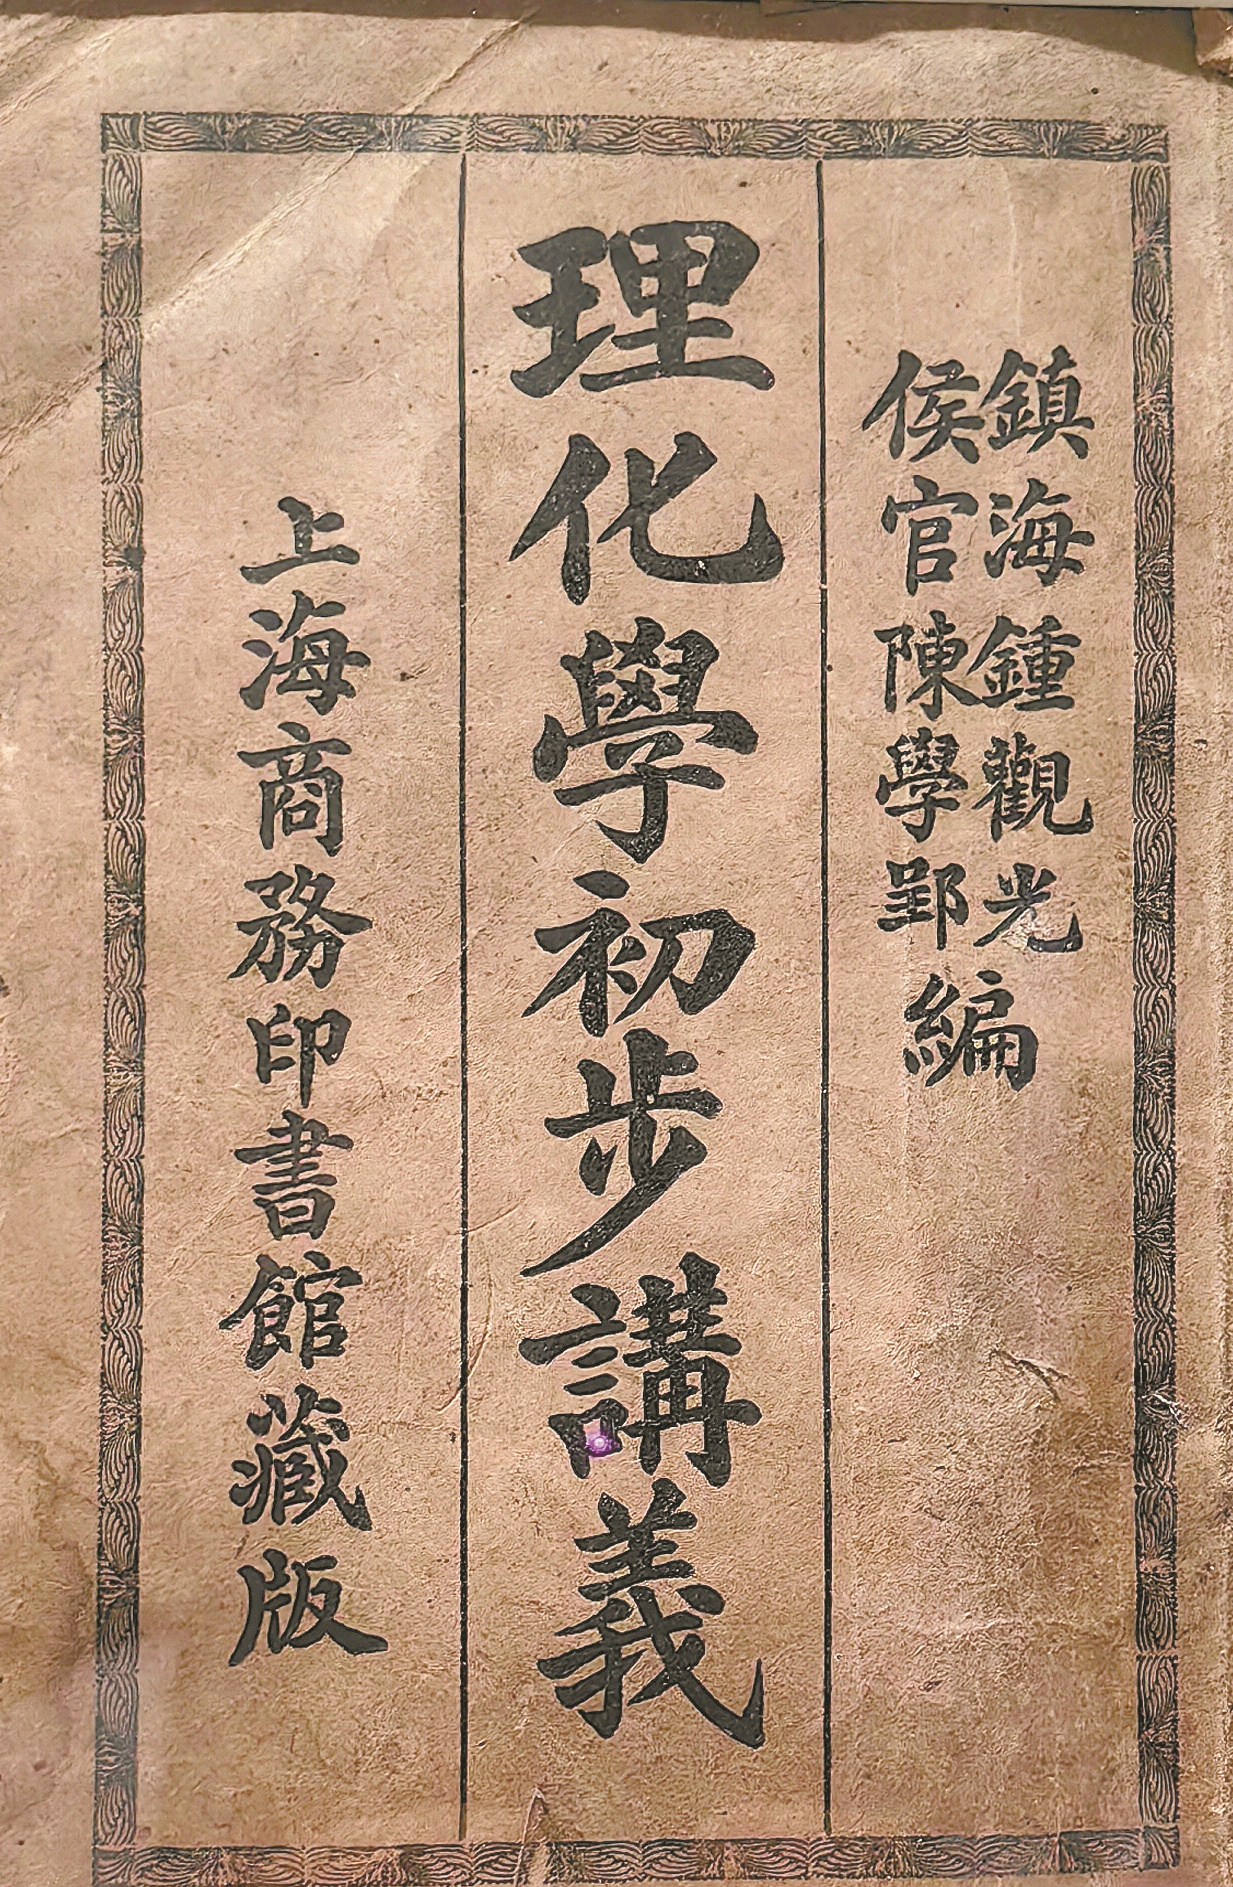 鎮海鍾觀光
侯官陳學郢
編
理化學初步講義
上海商務印書館藏版